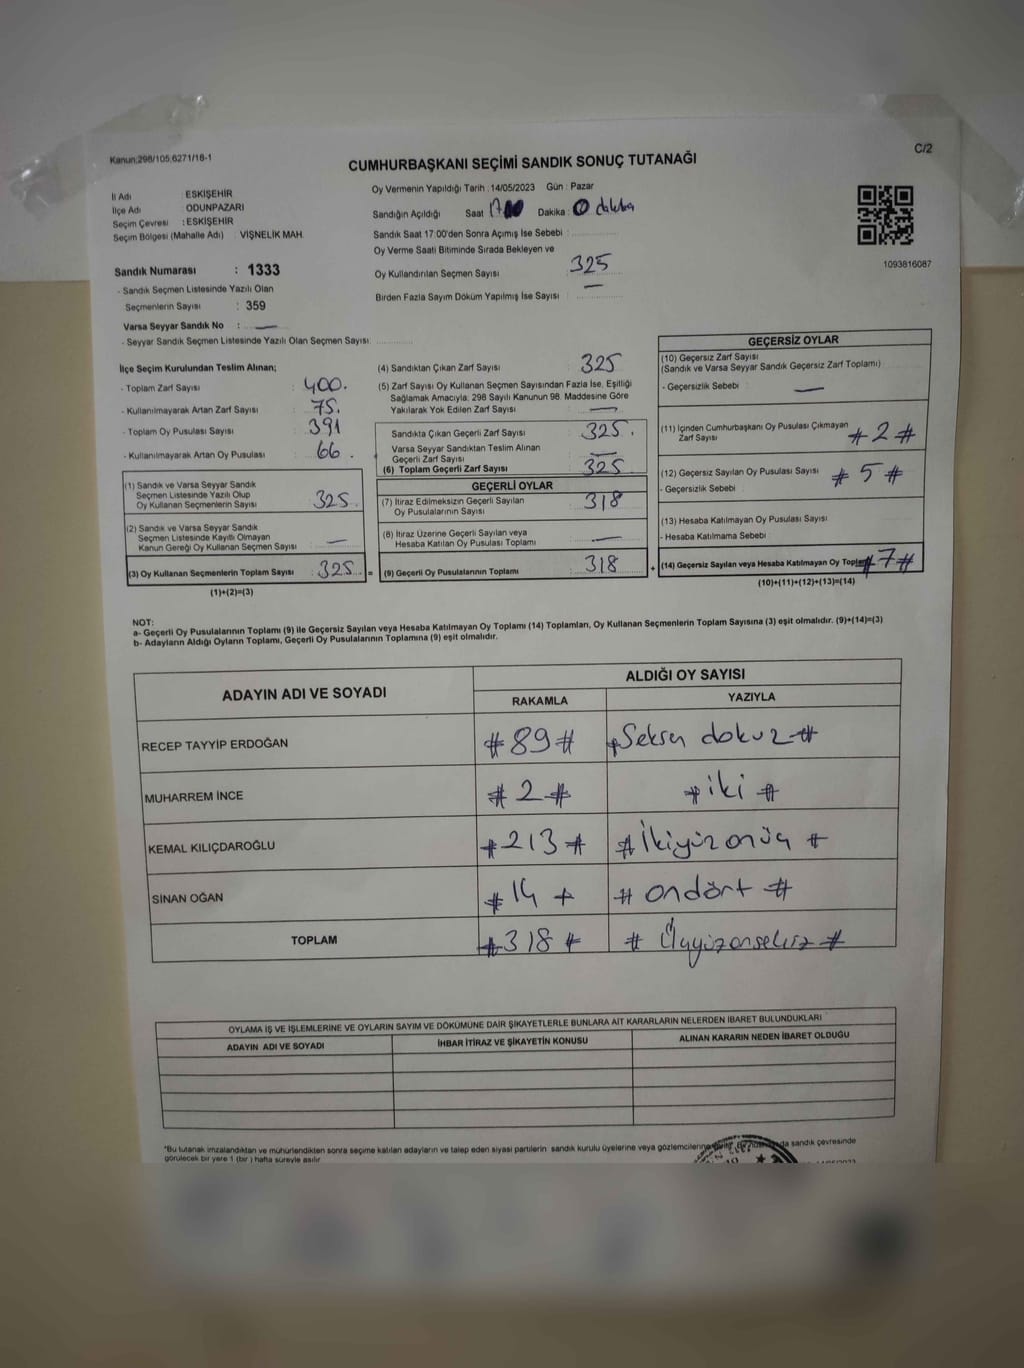 Kanun:298/105,6271/18-1
C/2
CUMHURBAŞKANI SEÇİMİ SANDIK SONUÇ TUTANAĞI
İl Adı : ESKİŞEHİR
İlçe Adı : ODUNPAZARI
Seçim Çevresi : ESKİŞEHİR
Seçim Bölgesi (Mahalle Adı) : VİŞNELİK MAH.
Sandık Numarası : 1333
- Sandık Seçmen Listesinde Yazılı Olan
Seçmenlerin Sayısı : 359
Varsa Seyyar Sandık No : —
- Seyyar Sandık Seçmen Listesinde Yazılı Olan Seçmen Sayısı:
Oy Vermenin Yapıldığı Tarih : 14/05/2023 Gün : Pazar
Sandığın Açıldığı Saat 17 Dakika : 0 dakika
Sandık Saat 17:00'den Sonra Açımış İse Sebebi :
Oy Verme Saati Bitiminde Sırada Bekleyen ve
Oy Kullandırılan Seçmen Sayısı : 325
Birden Fazla Sayım Döküm Yapılmış İse Sayısı : —
1093816087
İlçe Seçim Kurulundan Teslim Alınan;
- Toplam Zarf Sayısı : 400.
- Kullanılmayarak Artan Zarf Sayısı : 75.
- Toplam Oy Pusulası Sayısı : 391
- Kullanılmayarak Artan Oy Pusulası : 66.
(1) Sandık ve Varsa Seyyar Sandık
Seçmen Listesinde Yazılı Olup
Oy Kullanan Seçmenlerin Sayısı 325
(2) Sandık ve Varsa Seyyar Sandık
Seçmen Listesinde Kayıtlı Olmayan
Kanun Gereği Oy Kullanan Seçmen Sayısı —
(3) Oy Kullanan Seçmenlerin Toplam Sayısı 325 =
(1)+(2)=(3)
(4) Sandıktan Çıkan Zarf Sayısı : 325
(5) Zarf Sayısı Oy Kullanan Seçmen Sayısından Fazla İse, Eşitliği
Sağlamak Amacıyla; 298 Sayılı Kanunun 98. Maddesine Göre
Yakılarak Yok Edilen Zarf Sayısı : —
Sandıkta Çıkan Geçerli Zarf Sayısı : 325.
Varsa Seyyar Sandıktan Teslim Alınan
Geçerli Zarf Sayısı : —
(6) Toplam Geçerli Zarf Sayısı : 325
GEÇERLİ OYLAR
(7) İtiraz Edilmeksizin Geçerli Sayılan
Oy Pusulalarının Sayısı : 318
(8) İtiraz Üzerine Geçerli Sayılan veya
Hesaba Katılan Oy Pusulası Toplamı : —
(9) Geçerli Oy Pusulalarının Toplamı : 318 +
GEÇERSİZ OYLAR
(10) Geçersiz Zarf Sayısı
(Sandık ve Varsa Seyyar Sandık Geçersiz Zarf Toplamı)
- Geçersizlik Sebebi : —
(11) İçinden Cumhurbaşkanı Oy Pusulası Çıkmayan
Zarf Sayısı # 2 #
(12) Geçersiz Sayılan Oy Pusulası Sayısı # 5 #
- Geçersizlik Sebebi :
(13) Hesaba Katılmayan Oy Pusulası Sayısı
- Hesaba Katılmama Sebebi
(14) Geçersiz Sayılan veya Hesaba Katılmayan Oy Toplamı # 7 #
(10)+(11)+(12)+(13)=(14)
NOT:
a- Geçerli Oy Pusulalarının Toplamı (9) ile Geçersiz Sayılan veya Hesaba Katılmayan Oy Toplamı (14) Toplamları, Oy Kullanan Seçmenlerin Toplam Sayısına (3) eşit olmalıdır. (9)+(14)=(3)
b- Adayların Aldığı Oyların Toplamı, Geçerli Oy Pusulalarının Toplamına (9) eşit olmalıdır.
ADAYIN ADI VE SOYADI
ALDIĞI OY SAYISI
RAKAMLA YAZIYLA
RECEP TAYYİP ERDOĞAN # 89 # # Seksen dokuz #
MUHARREM İNCE # 2 # # iki #
KEMAL KILIÇDAROĞLU # 213 # # İkiyüzonüç #
SİNAN OĞAN # 14 # # ondört #
TOPLAM # 318 # # Üçyüzonsekiz #
OYLAMA İŞ VE İŞLEMLERİNE VE OYLARIN SAYIM VE DÖKÜMÜNE DAİR ŞİKAYETLERLE BUNLARA AİT KARARLARIN NELERDEN İBARET BULUNDUKLARI
ADAYIN ADI VE SOYADI İHBAR İTİRAZ VE ŞİKAYETİN KONUSU ALINAN KARARIN NEDEN İBARET OLDUĞU
*Bu tutanak imzalandıktan ve mühürlendikten sonra seçime katılan adayların ve talep eden siyasi partilerin sandık kurulu üyelerine veya gözlemcilerine sandık çevresinde
görülecek bir yere 1 (bir) hafta süreyle asılır